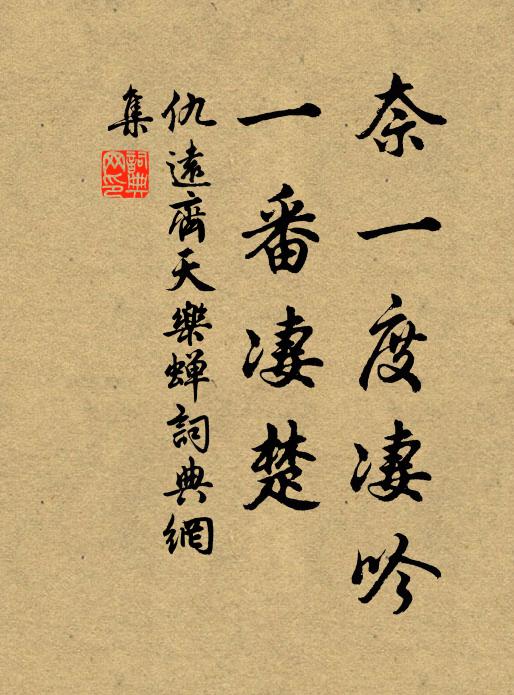 奈一度凄吟
一番凄楚
仇遠齊天樂蟬詞典網
集
詞典
网印